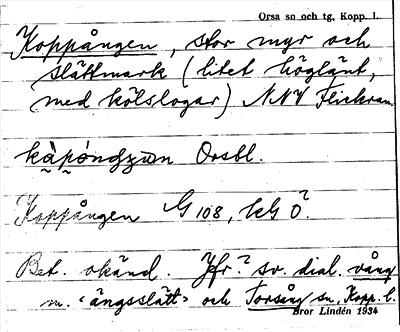 Orsa sn och tg, Kopp. l.
Koppången, stor myr och
slättmark (litet höglänt,
med kölslogar) NNV Fleckran
Orsbl.
Koppången G 108, kG 0?
Bet. okänd. Jfr? sv. dial. vång
m. ‹ängsslätt› och Torsång sn, Kopp. l.
Bror Lindén 1934